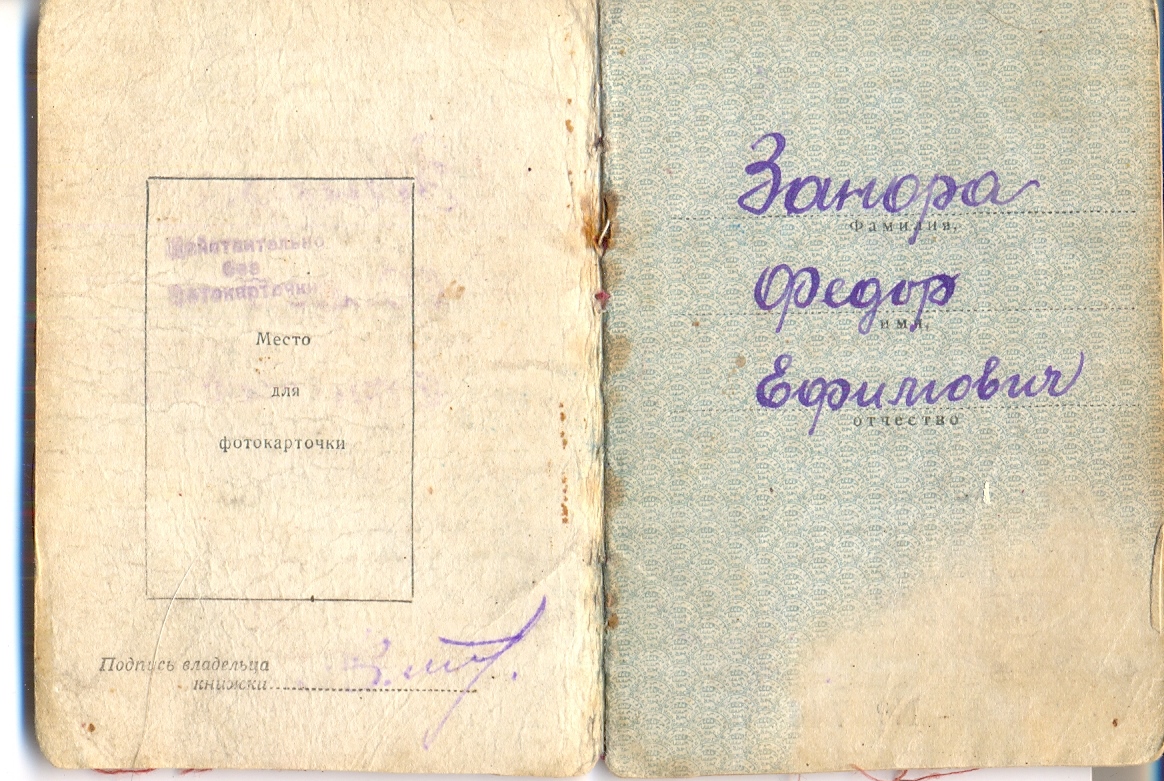 Действительно
без
фотокарточки
Место
для
фотокарточки
Подпись владельца
книжки
Занора
Фамилия,
Федор
имя,
Ефимович
отчество